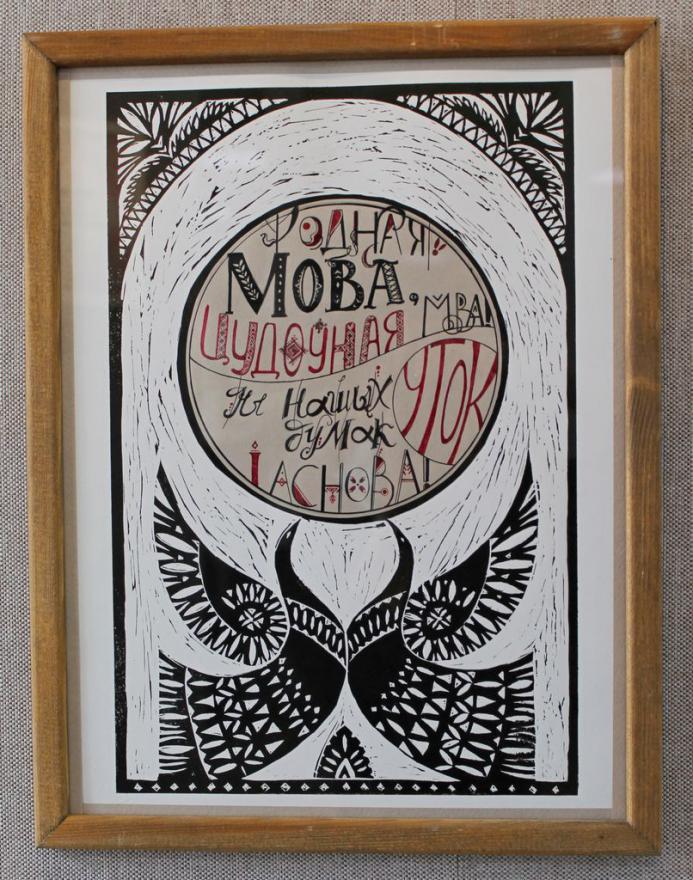 РОДНАЯ!
МОВА,
ЦУДОЎНАЯ МОВА!
Ты нашых
думак УТОК
І АСНОВА!